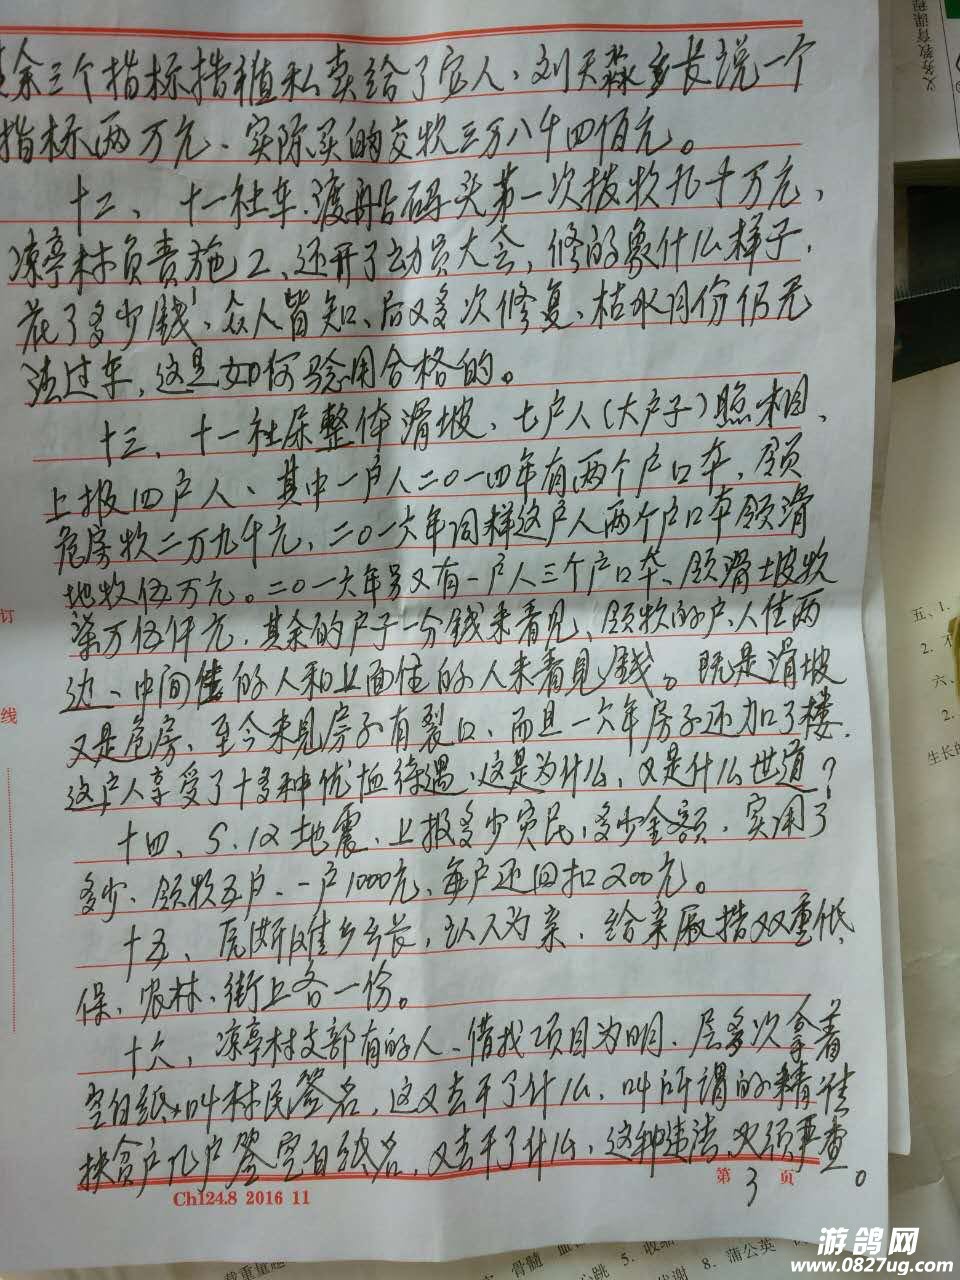 余三个指标措植私卖给了它人、刘天淼乡长说一个
指标两万元、实际买的交钦三万八千四佰元。
十二、十一社车渡船码头第一次拨钦九十万元、
凉亭村负责施工、还开了动员大会，修的象什么样子、
花了多少钱、众人皆知、后又多次修复、枯水月份仍无
法过车，这是如何验用合格的。
十三、十一社尿整体滑坡、七户人(大户子)照相、
上报四户人、其中一户人二〇一四年有两个户口本，领
危房钦二万九千元、二〇一六年同样这户人两个户口本领滑
地钦伍万元。二〇一六年另又有一户人三个户口本、领滑坡钦
柒万伍仟元，其余的户子一分钱未看见、领钦的户、人住两
边、中间住的人和上面住的人未看见钱。既是滑坡
又是危房、至今未见房子有裂口、而且一六年房子还加了楼.
这户人享受了十多种优恤待遇、这是为什么，又是什么世道？
十四、5.12地震、上报多少灾民，多少金额，实用了
多少、领钦五户、一户1000元、每户还回扣200元。
十五、乡长，认人为亲、给亲厰措双重低
保、农林、街上各一份。
十六、凉亭村支部有的人、借找项目为明、层多次拿着
空白纸叫村民签名，这又去干了什么，叫所谓的精准
扶贫户几户签空白纸名，又去干了什么，这种违法，必须严查。
Ch124.8 2016 11
第 3 页
订
线
义务教育课程
五、1.
2. 不
六、
2.
生长的
载重量
骨髓
心跳 5. 收缩
8. 蒲公英
游鸽网
www.0827ug.com